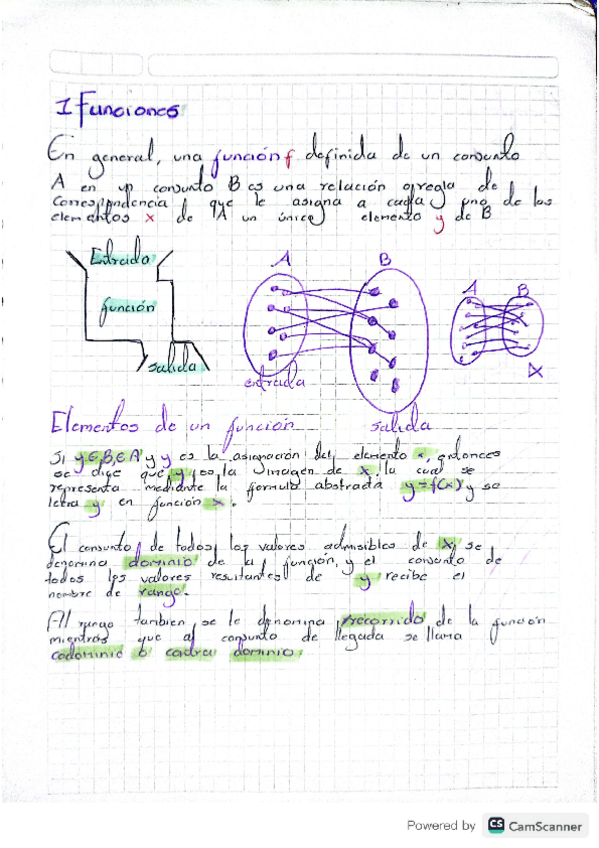 1 Funciones
En general, una función f definida de un conjunto
A en un conjunto B es una relación o regla de
correspondencia que le asigna a cada uno de los
elementos x de A un único elemento y de B
Entrada
función
salida
A
B
entrada
salida
A
B
Elementos de un función
Si y y es la asignación del elemento x, entonces
se dice que y es la imagen de x, la cual se
representa mediante la formula abstrada y=f(x) y se
letra y en función x.
El conjunto de todos los valores admisibles de x, se
denomina dominio de la función, y el conjunto de
todos los valores resultantes de y recibe el
nombre de rango.
Al rango tanbien se le denomina recorrido de la función
mientras que al conjunto de llegada se llama
codominio o contra dominio.
Powered by CS CamScanner